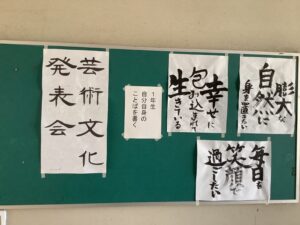 芸術文化
発表会
1年生
自分自身の
ことばを書く
幸せに
包み込まれて
生きている
膨大な
自然に
身を置きたい
毎日を
笑顔で
過ごしたい